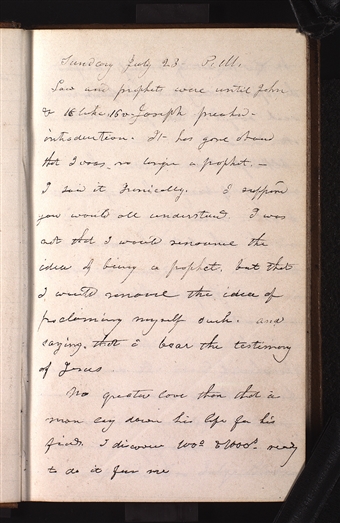 Sunday July 23. P.M.
Law and prophets were until John
& 16 Luke 16 v Joseph preachd
introduction. It has gone abroad
that I was no longer a prophet –
I said it Ironically. I suppose
you would all understand. I was
not that I would renounce the
idea of being a prophet, but that
I would renounce the idea of
proclaiming myself such. and
saying that I bear the testimony
of Jesus
No greater love than that a
man lay down his life for his
friend. I discover
to do it for me